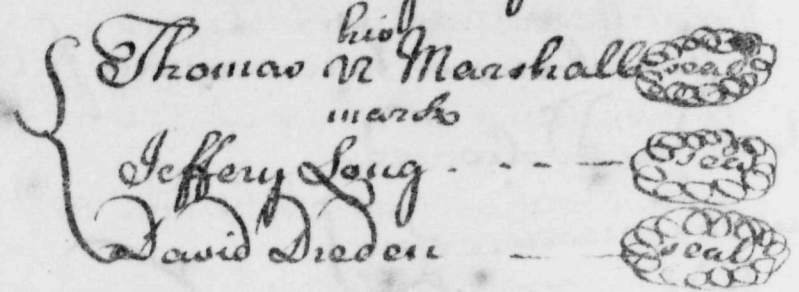 his
Thomas VI Marshall seal
mark
Jeffery Long - - - - seal
David Dreden - seal